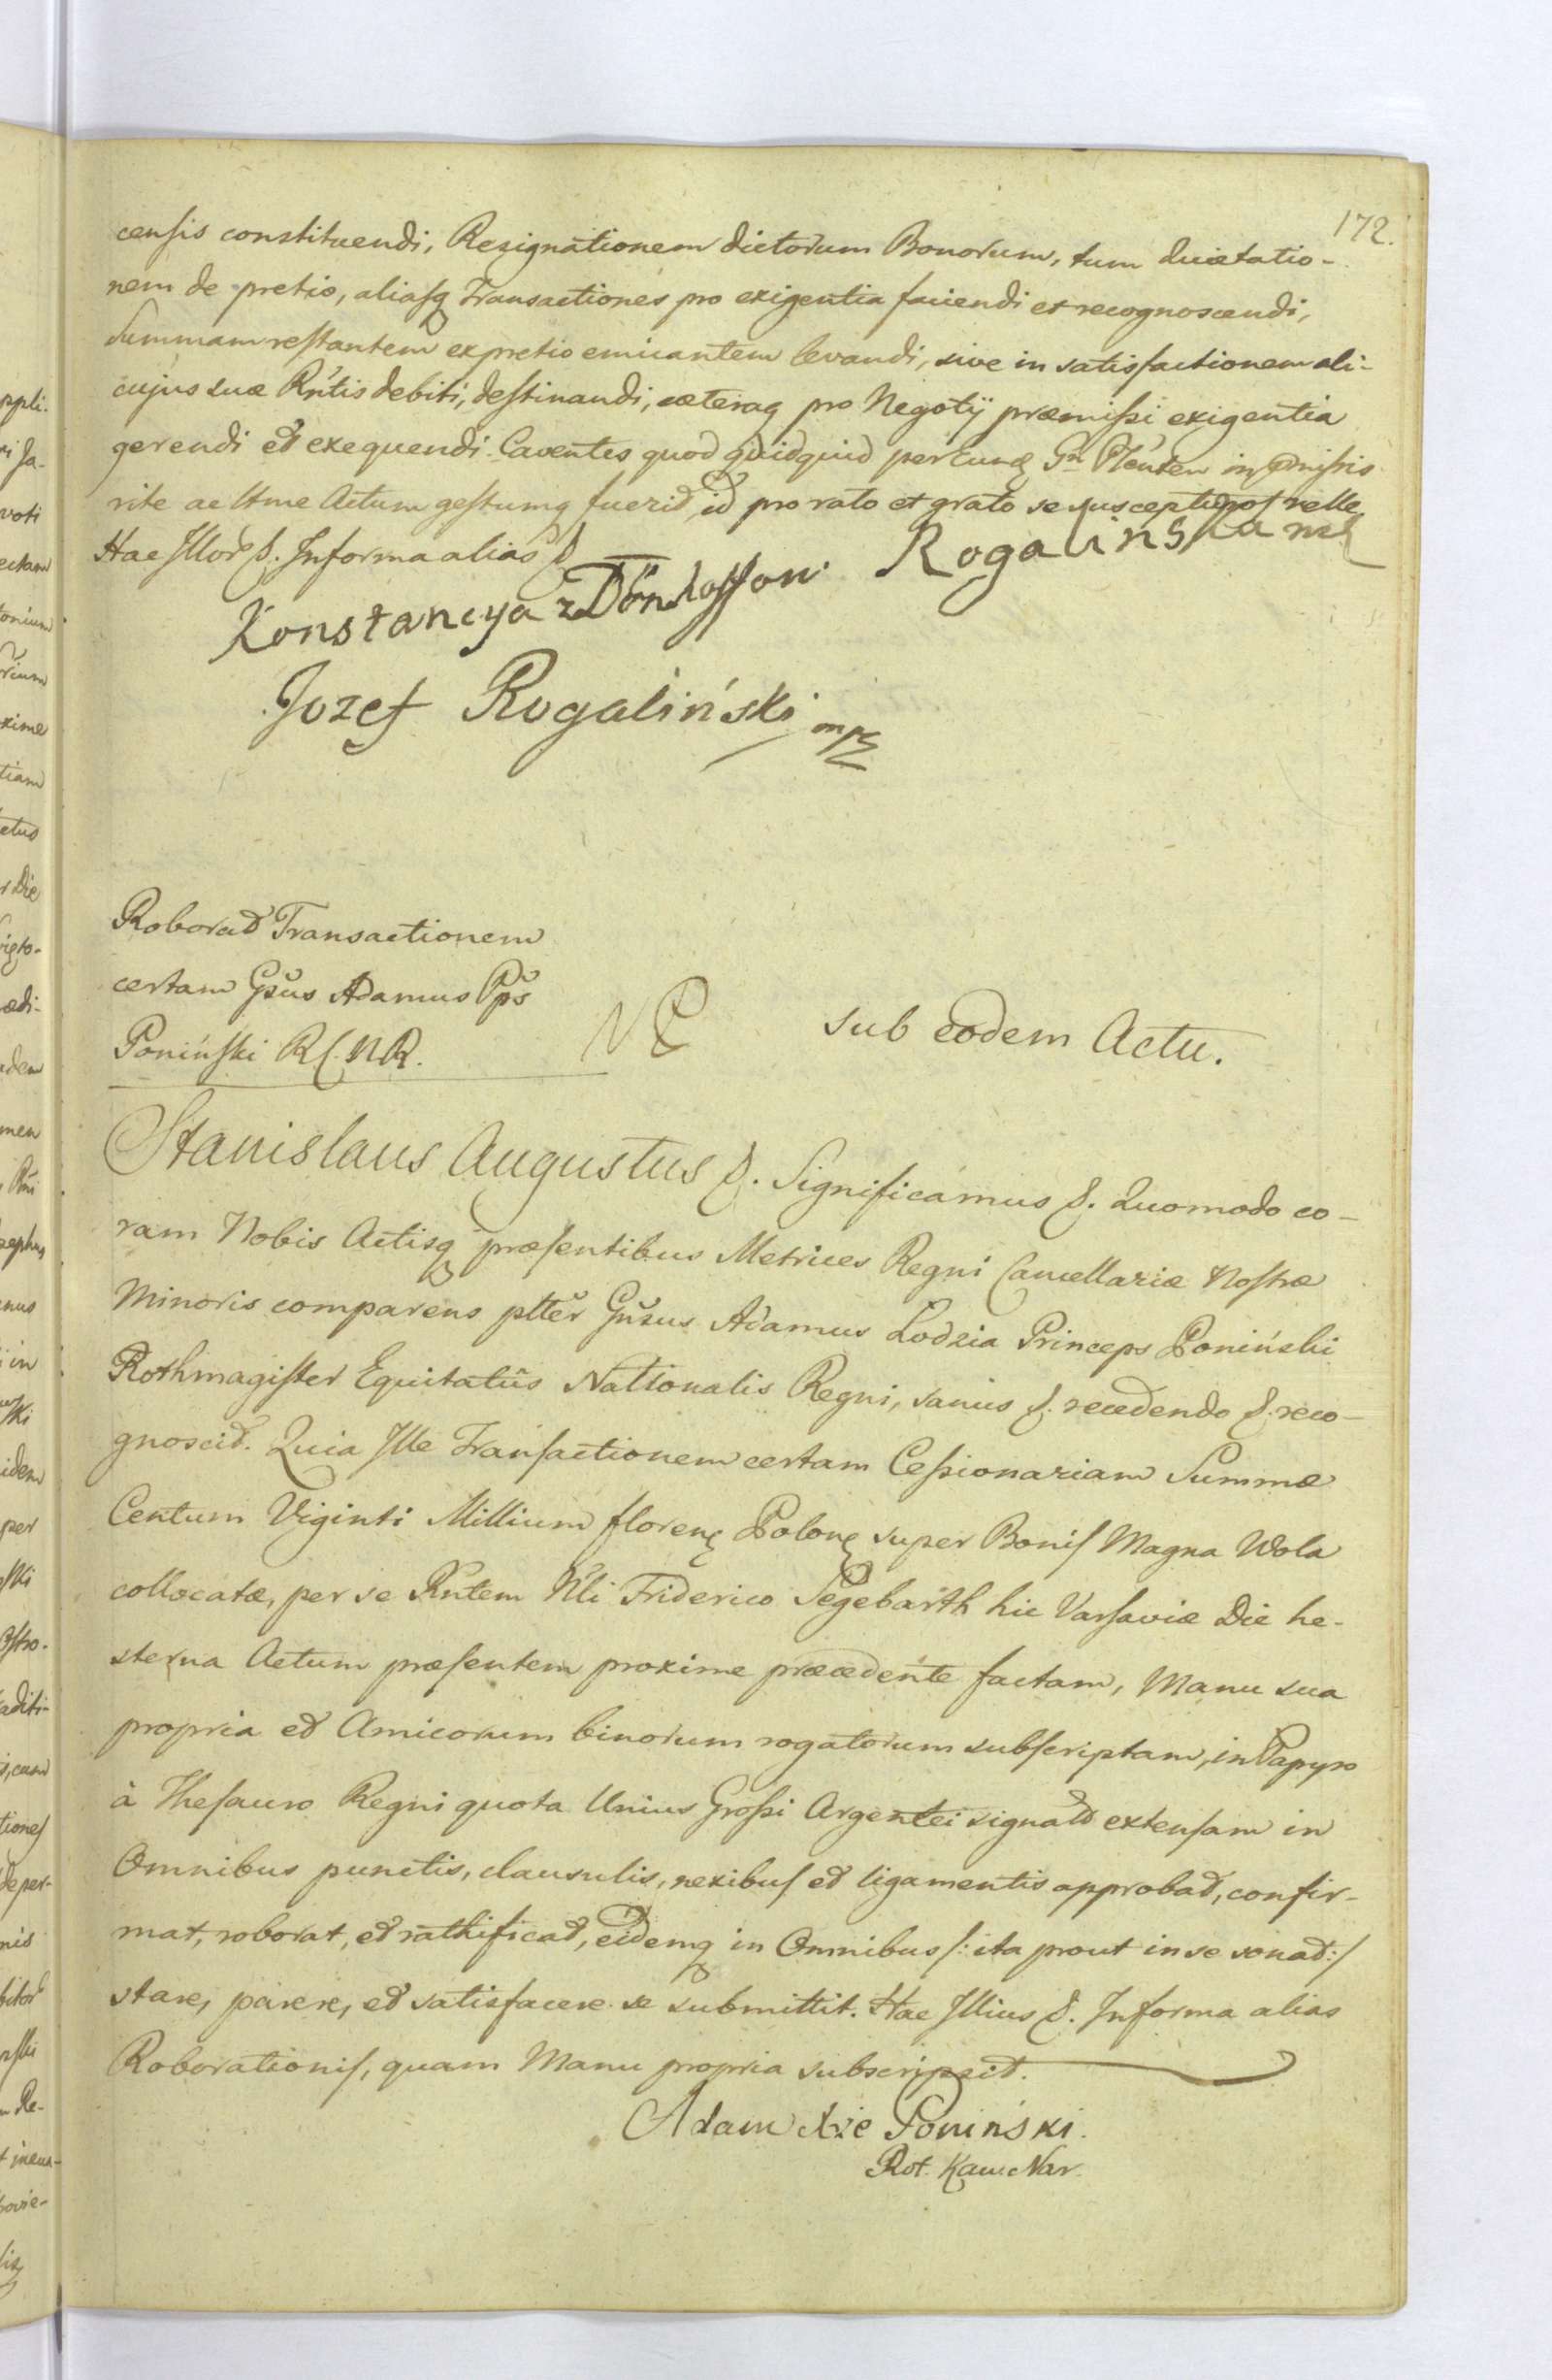 172.
censis constituendi, Resignationem dictorum Bonorum, tum Quietatio-
nem de pretio, aliasq Transactiones pro exigentia faciendi et recognoscendi,
Summam restantem ex pretio emicantem levandi, sive in satisfactionem ali-
cujus suæ Rntis debiti, destinandi, cæteraq pro Negotÿ præmissi exigentia
gerendi et exequendi. Caventes quod quidquid per Eund Gn Plenten in pmissis
rite ac ltme Actum gestumq fuerit, id pro rato et grato se suscepturos velle
Hac Illor &. In forma alias &
Konstancya z Dönhoffow Rogalinska
Jozef Rogaliński mp
Roborat Transactionem
certam Gsus Adamus Pps
Poniński R C. N R.
NP
sub eodem Actu.
Stanislaus Augustus &. Significamus &. Quomodo co-
ram Nobis Actisq præsentibus Metrices Regni Cancellariæ Nostræ
Minoris comparens ptter Gnsus Adamus Lodzia Princeps Poniński
Rothmagister Equitatûs Nationalis Regni, sanus &. recedendo &. reco-
gnoscit. Quia Ille Transactionem certam Cessionariam Summæ
Centum Viginti Millium floren Polon super Bonis Magna Wola
collocatæ, per se Rntem Nli Friderico Segebarth hic Varsaviæ Die he-
sterna Actum præsentem proxime præcedente factam, Manu sua
propria et Amicorum binorum rogatorum subscriptam, in Papyro
à Thesauro Regni quota Unius Grossi Argentei signato extensam in
Omnibus punctis, clausulis, nexibus et ligamentis approbat, confir-
mat, roborat, et rathificat, eidemq in Omnibus /: ita prout in se sonat :/
stare, parere, et satisfacere se submittit. Hac Illius &. In forma alias
Roborationis, quam Manu propria subscripsit.
Adam Xże Poniński.
Rot. Kaw. Nar.